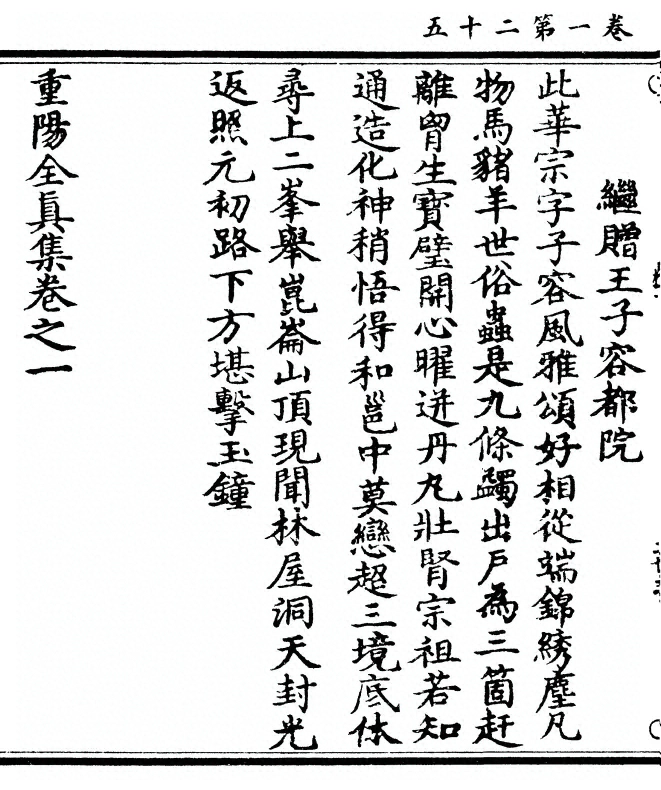 卷一第二十五
繼贈王子容都院
此華宗字子容風雅頌好相從端錦綉塵凡
物馬豬羊世俗蟲是九條蠲出戶為三箇趕
離胷生寶璧開心曜迸丹丸壯腎宗祖若知
通造化神稍悟得和邕中莫戀超三境底休
尋上二峯舉崑崙山頂現聞林屋洞天封光
返照元初路下方堪擊玉鐘
重陽全眞集卷之一